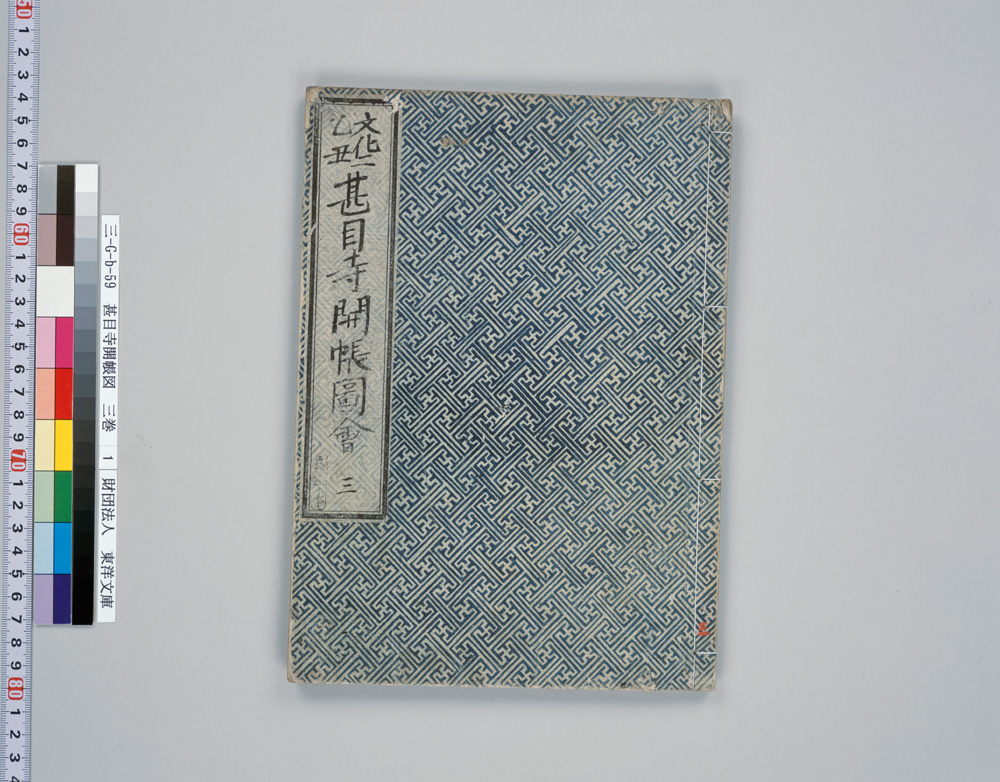 文化二
乙丑
甚目寺開帳圖會 三
三-G-b-59 甚目寺開帳図 三巻 1 財団法人 東洋文庫
50 1 2 3 4 5 6 7 8 9 60 1 2 3 4 5 6 7 8 9 70 1 2 3 4 5 6 7 8 9 80 1 2 3 4